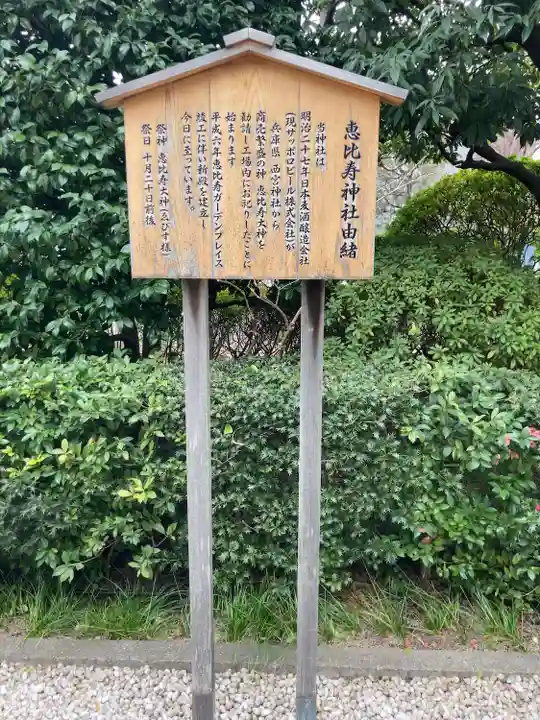 恵比寿神社由緒
当神社は、
明治二十七年日本麦酒醸造会社
(現サッポロビール株式会社)が
兵庫県 西宮神社から
商売繁盛の神 恵比寿大神を
勧請し工場内にお祀りしたことに
始まります
平成六年恵比寿ガーデンプレイス
竣工に伴い新殿を建立し
今日に至っています。
祭神 恵比寿大神(ゑびす様)
祭日 十月二十日前後